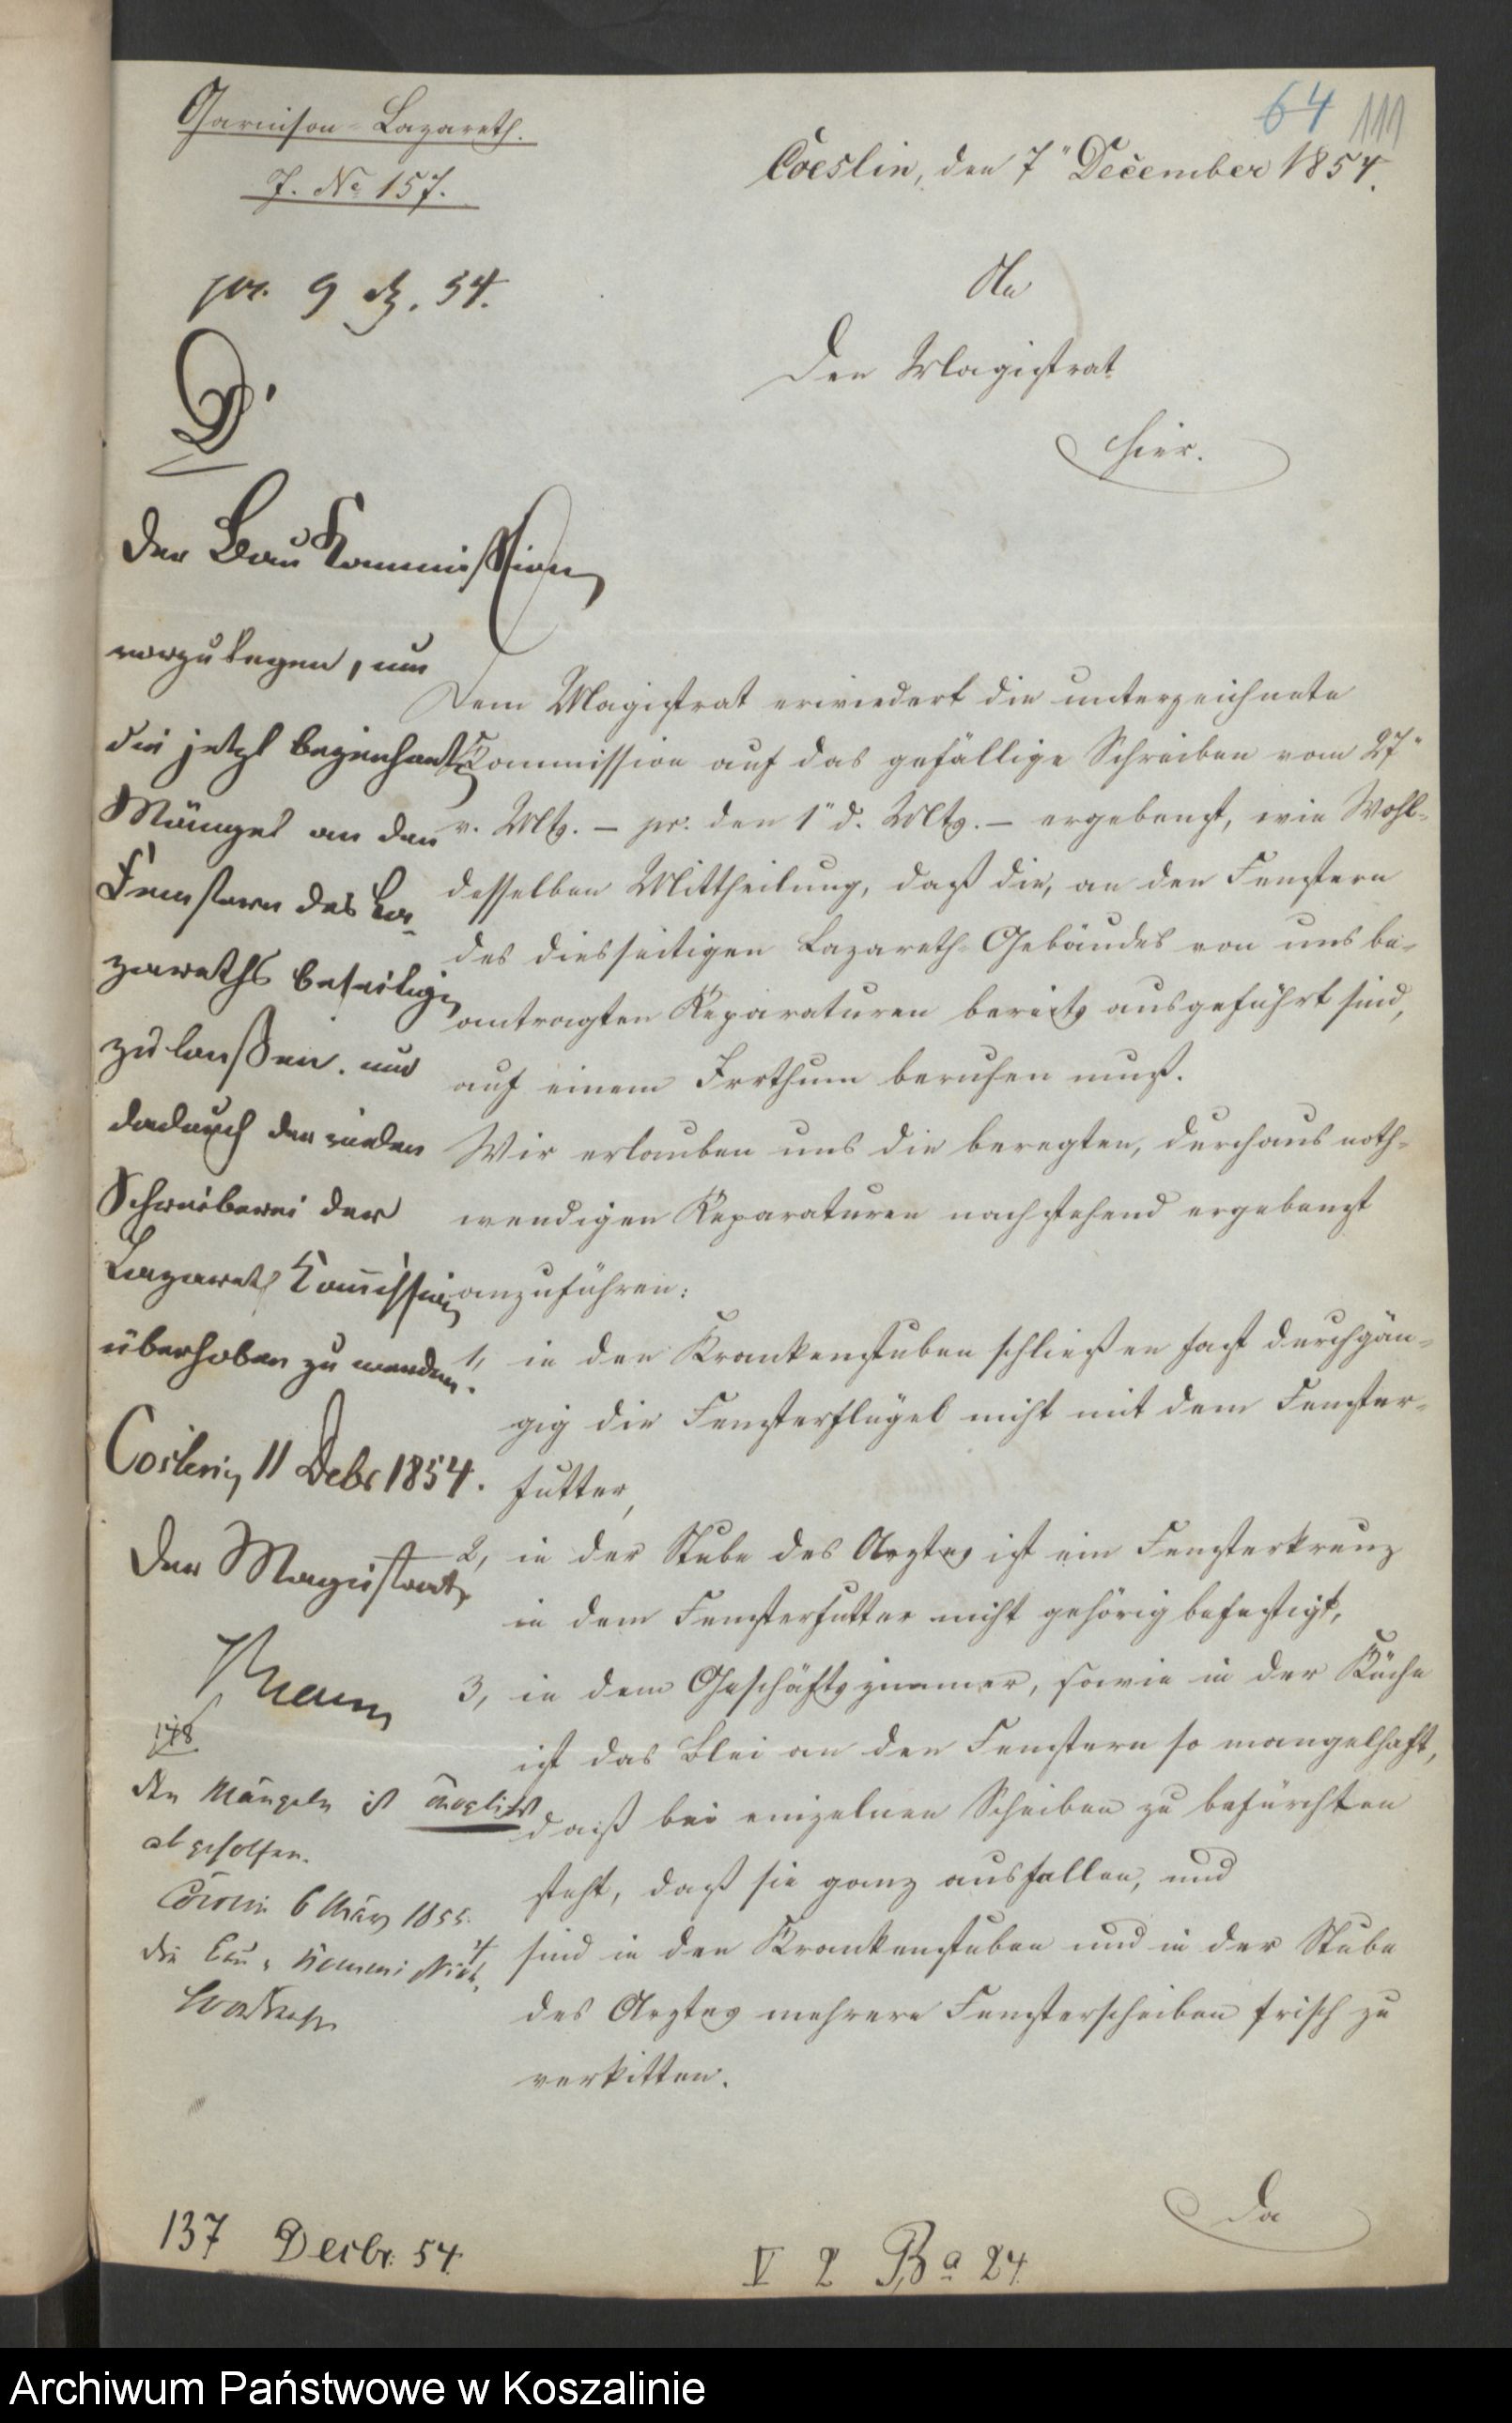 Garnison-Lazareth.
J. No 157.
64 111
Coeslin, den 7" December 1854.
pr. 9 Dz. 54.
An
den Magistrat
hier.
Der Bau Kommission
vorzulegen, um
die jetzt bezeichneten
Mängel an den
Fenstern des La-
zareths beseitigen
zu lassen. und
dadurch der vielen
Schreiberei der
Lazareth Kommission
überhoben zu werden.
Coeslin, 11 Debr 1854.
Der Magistrat
Dem Magistrat erwiedert die unterzeichnete
Kommission auf das gefällige Schreiben vom 27"
v. Mts. – pr. den 1" d. Mts. – ergebenst, wie Wohl-
desselben Mittheilung, daß die, an den Fenstern
des diesseitigen Lazareth-Gebäudes von uns be-
antragten Reparaturen bereits ausgeführt sind,
auf einem Irrthum beruhen muß.
Wir erlauben uns die beregten, durchaus noth-
wendigen Reparaturen nachstehend ergebenst
anzuführen:
1, in den Krankenstuben schließen fast durchgän-
gig die Fensterflügel nicht mit dem Fenster-
futter,
2, in der Stube des Arztes ist ein Fensterkreuz
in dem Fensterfutter nicht gehörig befestigt,
3, in dem Geschäftszimmer, sowie in der Küche
ist das Blei an den Fenstern so mangelhaft,
daß bei einzelnen Scheiben zu befürchten
steht, daß sie ganz ausfallen, und
4, sind in den Krankenstuben und in der Stube
des Arztes mehrere Fensterscheiben frisch zu
verkitten.
Den Mängeln ist möglichst
abgeholfen.
Cöslin 6 März 1855.
Die Bau-Kommission
Da
137 Decbr. 54.
V 2 Ba 24
Archiwum Państwowe w Koszalinie